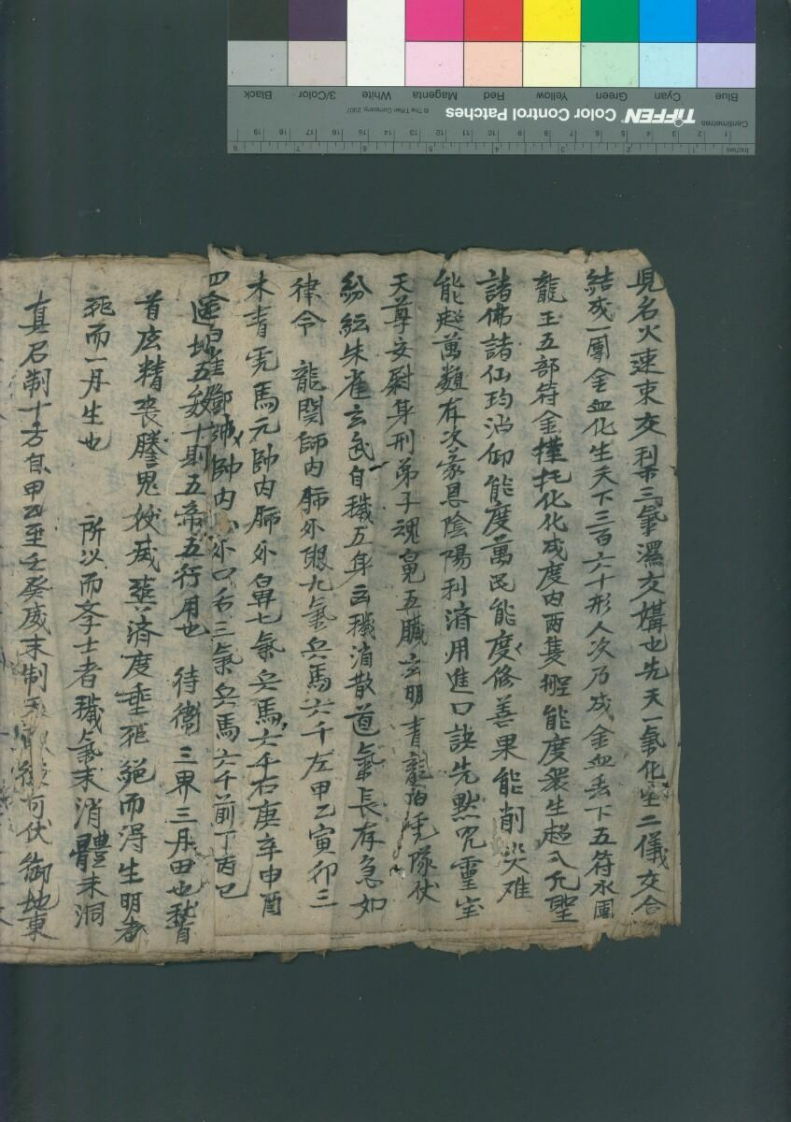 見名火速来交利帀三氣濕交媾也先天一氣化生二儀交合
結成一團金血化生天下三百六十形人次乃成金血丢下五符水國
龍王五部符金攆扥化化成度内两隻 能度衆生超入凡聖
諸佛諸仙均沾仰能度萬民能度修善果能削災难
能超萬類存次蒙恩陰陽利済用進口訣先黙咒靈宝
天尊安慰身刑弟子魂鬼五臓玄明青龍白虎隊伏
紛紜朱雀玄武自穢五身五穢消散道氣長存急如
律令 龍関師内肺外眼九氣兵馬六千左甲乙寅卯三
木青虎馬元帥内肺外鼻七氣兵馬六千右庚辛申酉
四金白 鄧帥帥内心外口舌三氣兵馬六千前丁丙巳
五 十則五帝五行用也 待衛 三界三月田也稽
首広精喪謄鬼妙 済度垂死絶而得生明者
死而一丹生也 所以而李士者穢氣未消體未洞
真召制十方自甲乙至壬癸戚未制 可伏御地東
TIFFEN Color Control Patches
© The Tiffen Company, 2007
Blue Cyan Green Yellow Red Magenta White 3/Color Black
Centimetres
Inches